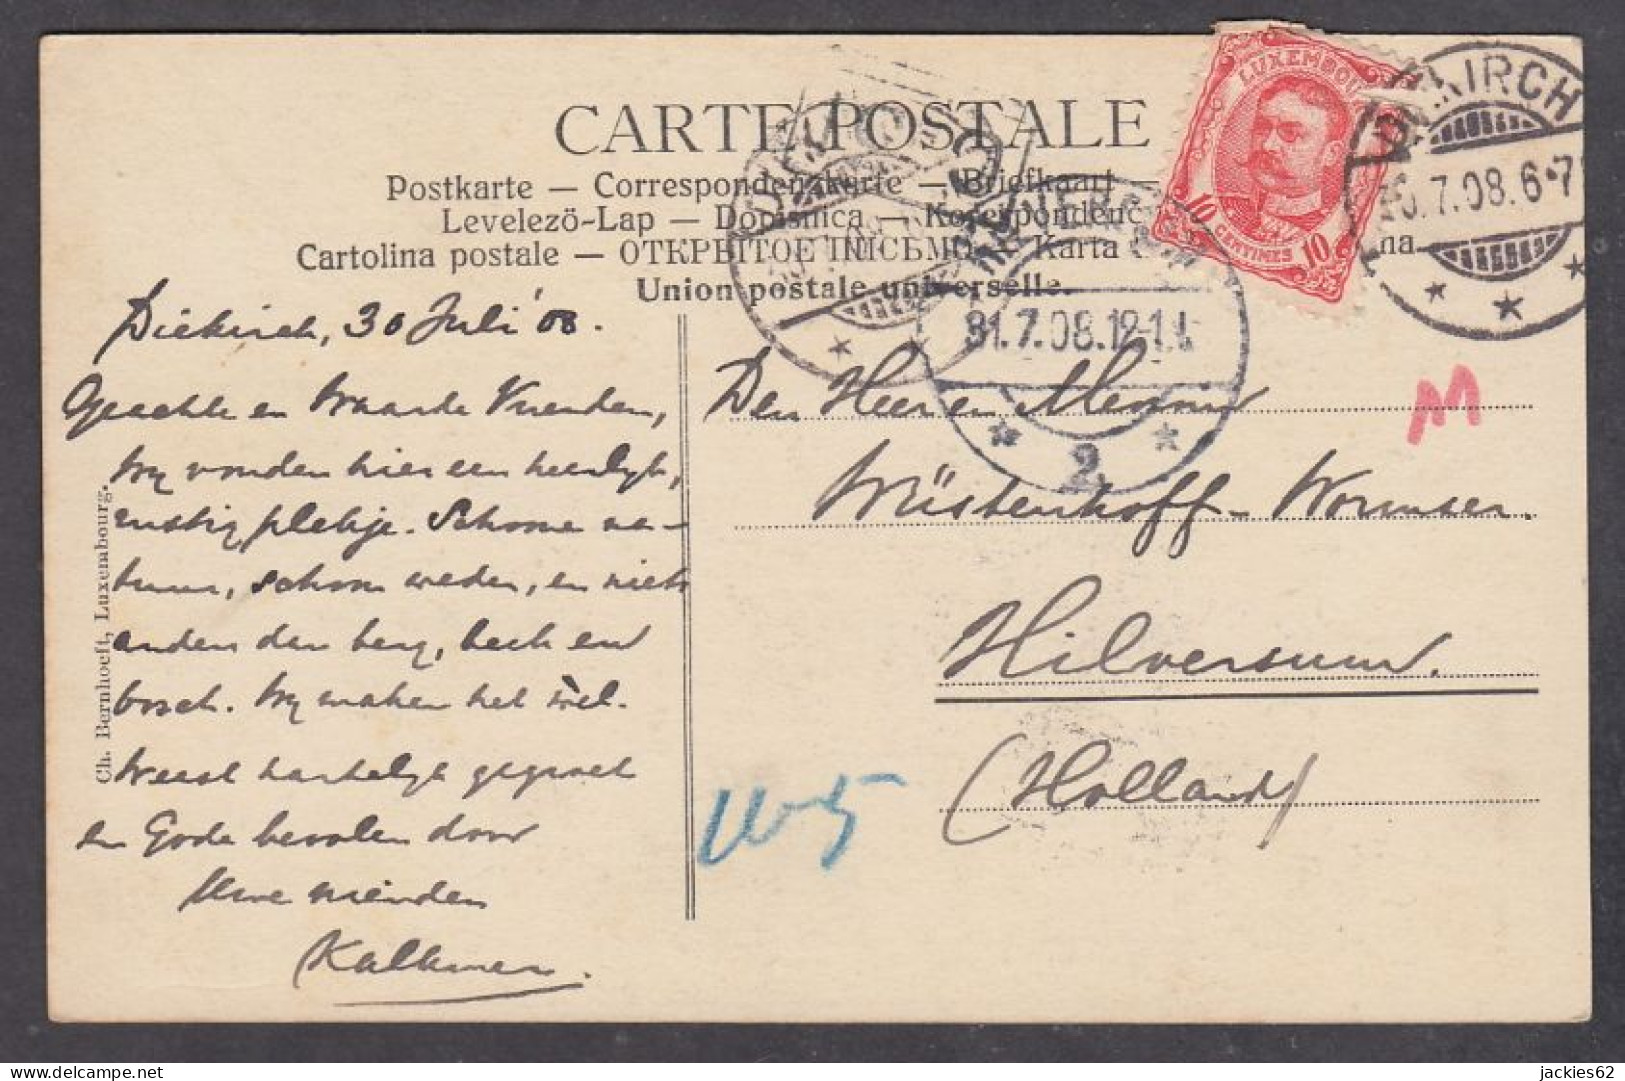 CARTE POSTALE
Postkarte — Correspondenzkarte — Briefkaart —
Levelező-Lap — Dopisnica — Korespondenc
Cartolina postale — ОТКРЫТОЕ ПИСЬМО — Karta na
Union postale universelle.
LUXEMBOU
10 CENTIMES 10
KIRCH
.7.08.6-7
HILVERSUM
31.7.08.12-1
2
Diekirch, 30 Juli '08.
Geachte en Waarde Vrienden,
Wy vonden hier een heerlyk,
rustig plekje. Schoone na-
tuur, schoon weder, en niets
anders dan berg, beek en
bosch. Wy maken het wèl.
Weest hartelyk gegroet
en Gode bevolen door
Uwe vrienden
Kalkman.
Den Heer en Mevrouw
Wüstenhoff-Wormser.
Hilversum.
(Holland)
M
Ch. Bernhoeft, Luxembourg.
jackies62